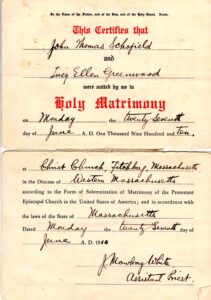 In the Name of the Father, and of the Son, and of the Holy Ghost. Amen.
This Certifies that
John Thomas Schofield
and
Lucy Ellen Greenwood
were united by me in
Holy Matrimony
on Monday the twenty Seventh
day of June A. D. One Thousand Nine Hundred and ten,
at Christ Church, Fitchburg, Massachusetts
in the Diocese of Western Massachusetts
according to the Form of Solemnization of Matrimony of the Protestant
Episcopal Church in the United States of America; and in accordance with
the laws of the State of Massachusetts
Dated Monday the twenty Seventh day of
June A. D. 1910
White
Assistant Priest.